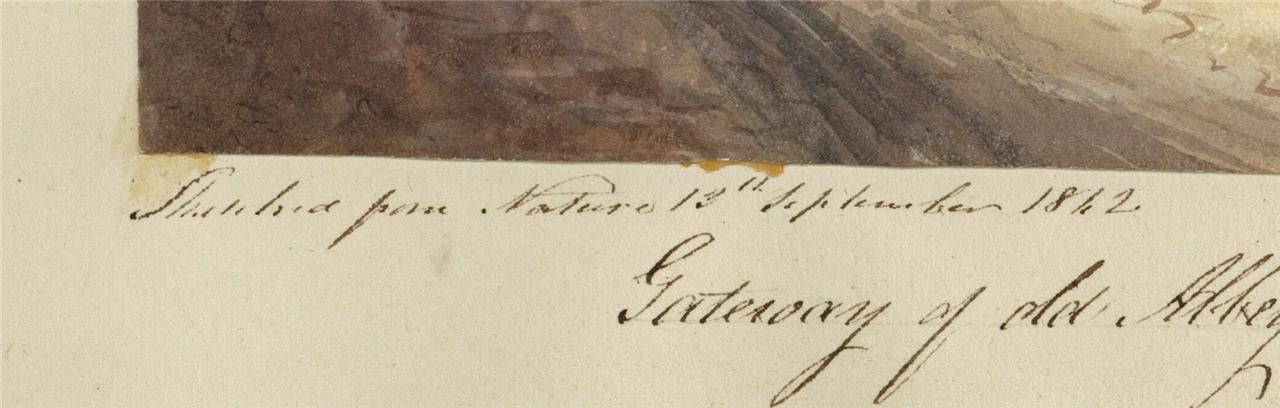 Sketched from Nature 13th September 1842
Gateway of old Abbey